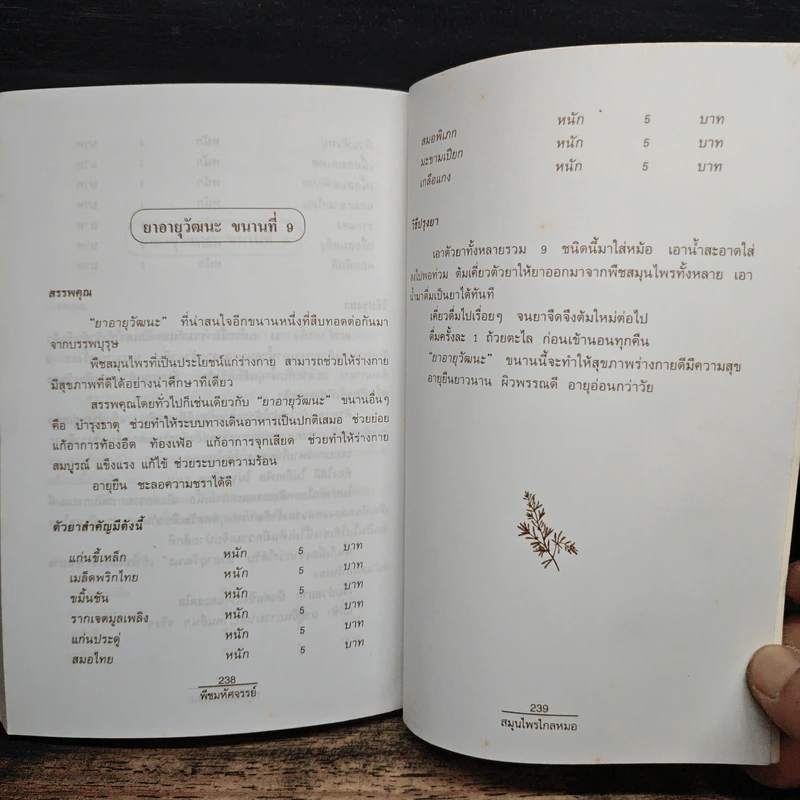 ยาอายุวัฒนะ ขนานที่ 9
สรรพคุณ
"ยาอายุวัฒนะ" ที่น่าสนใจอีกขนานหนึ่งที่สืบทอดต่อกันมา
จากบรรพบุรุษ
พืชสมุนไพรที่เป็นประโยชน์แก่ร่างกาย สามารถช่วยให้ร่างกาย
มีสุขภาพที่ดีได้อย่างน่าศึกษาทีเดียว
สรรพคุณโดยทั่วไปก็เช่นเดียวกับ "ยาอายุวัฒนะ" ขนานอื่นๆ
คือ บำรุงธาตุ ช่วยทำให้ระบบทางเดินอาหารเป็นปกติเสมอ ช่วยย่อย
แก้อาการท้องอืด ท้องเฟ้อ แก้อาการจุกเสียด ช่วยทำให้ร่างกาย
สมบูรณ์ แข็งแรง แก้ไข้ ช่วยระบายความร้อน
อายุยืน ชะลอความชราได้ดี
ตัวยาสำคัญมีดังนี้
แก่นขี้เหล็ก หนัก 5 บาท
เมล็ดพริกไทย หนัก 5 บาท
ขมิ้นชัน หนัก 5 บาท
รากเจตมูลเพลิง หนัก 5 บาท
แก่นประดู่ หนัก 5 บาท
สมอไทย หนัก 5 บาท
238
พืชมหัศจรรย์
สมอพิเภก หนัก 5 บาท
มะขามเปียก หนัก 5 บาท
เกลือแกง หนัก 5 บาท
วิธีปรุงยา
เอาตัวยาทั้งหลายรวม 9 ชนิดนี้มาใส่หม้อ เอาน้ำสะอาดใส่
ลงไปพอท่วม ต้มเคี่ยวตัวยาให้ยาออกมาจากพืชสมุนไพรทั้งหลาย เอา
น้ำมาดื่มเป็นยาได้ทันที
เคี่ยวดื่มไปเรื่อยๆ จนยาจืดจึงต้มใหม่ต่อไป
ดื่มครั้งละ 1 ถ้วยตะไล ก่อนเข้านอนทุกคืน
"ยาอายุวัฒนะ" ขนานนี้จะทำให้สุขภาพร่างกายดีมีความสุข
อายุยืนยาวนาน ผิวพรรณดี อายุอ่อนกว่าวัย
239
สมุนไพรไกลหมอ